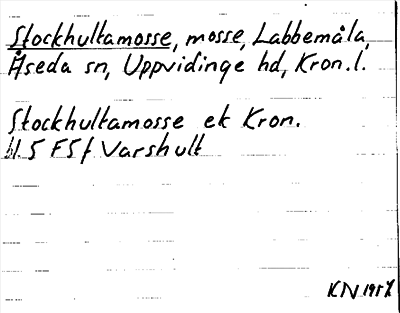 Stockhultamosse, mosse, Labbemåla,
Åseda sn, Uppvidinge hd, Kron. l.
Stockhultamosse ek Kron.
5 FSf Varshult
KN